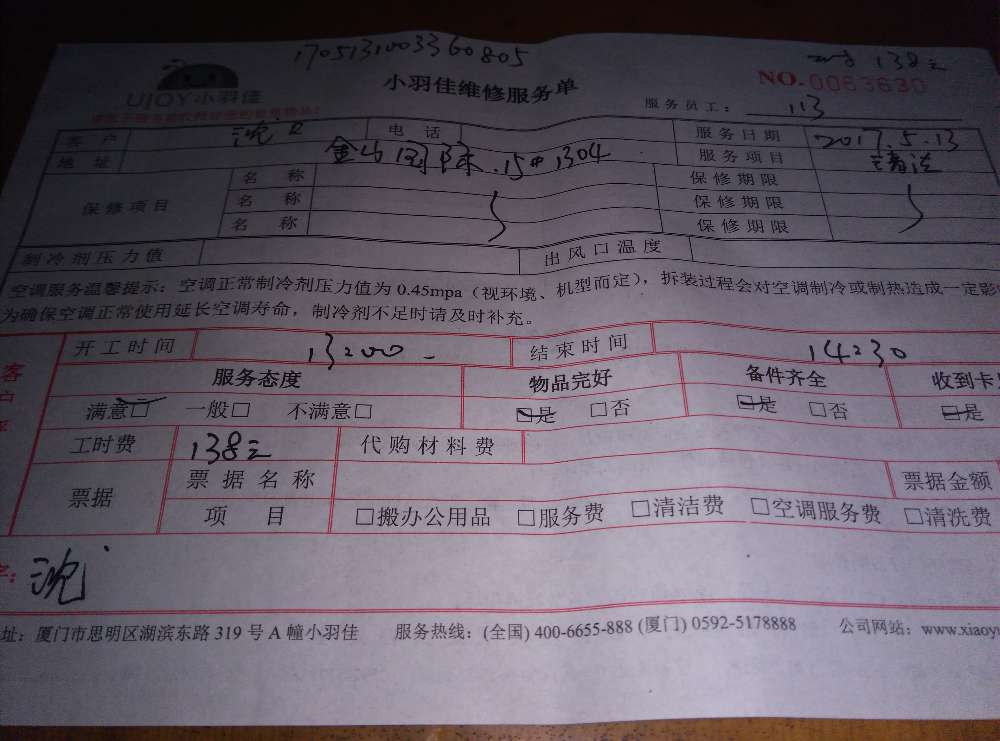 17051310033360805
138元
UJOY小羽佳
小羽佳维修服务单
NO.0063630
服务员工: 113
客户 沈 电话 服务日期 2017.5.13
地址 15#1304 服务项目 清洁
保修项目 名称 保修期限
名称 保修期限
名称 保修期限
制冷剂压力值 出风口温度
空调服务温馨提示: 空调正常制冷剂压力值为 0.45mpa (视环境、机型而定), 拆装过程会对空调制冷或制热造成一定影
为确保空调正常使用延长空调寿命, 制冷剂不足时请及时补充。
开工时间 13:00 结束时间 14:30
客户 服务态度 物品完好 备件齐全 收到卡
满意□ 一般□ 不满意□ □是 □否 □是 □否 □是
工时费 138元 代购材料费
票据 票据名称 票据金额
项目 □搬办公用品 □服务费 □清洁费 □空调服务费 □清洗费
字: 沈
址: 厦门市思明区湖滨东路 319 号 A 幢小羽佳 服务热线: (全国) 400-6655-888 (厦门) 0592-5178888 公司网站: www.xiaoy